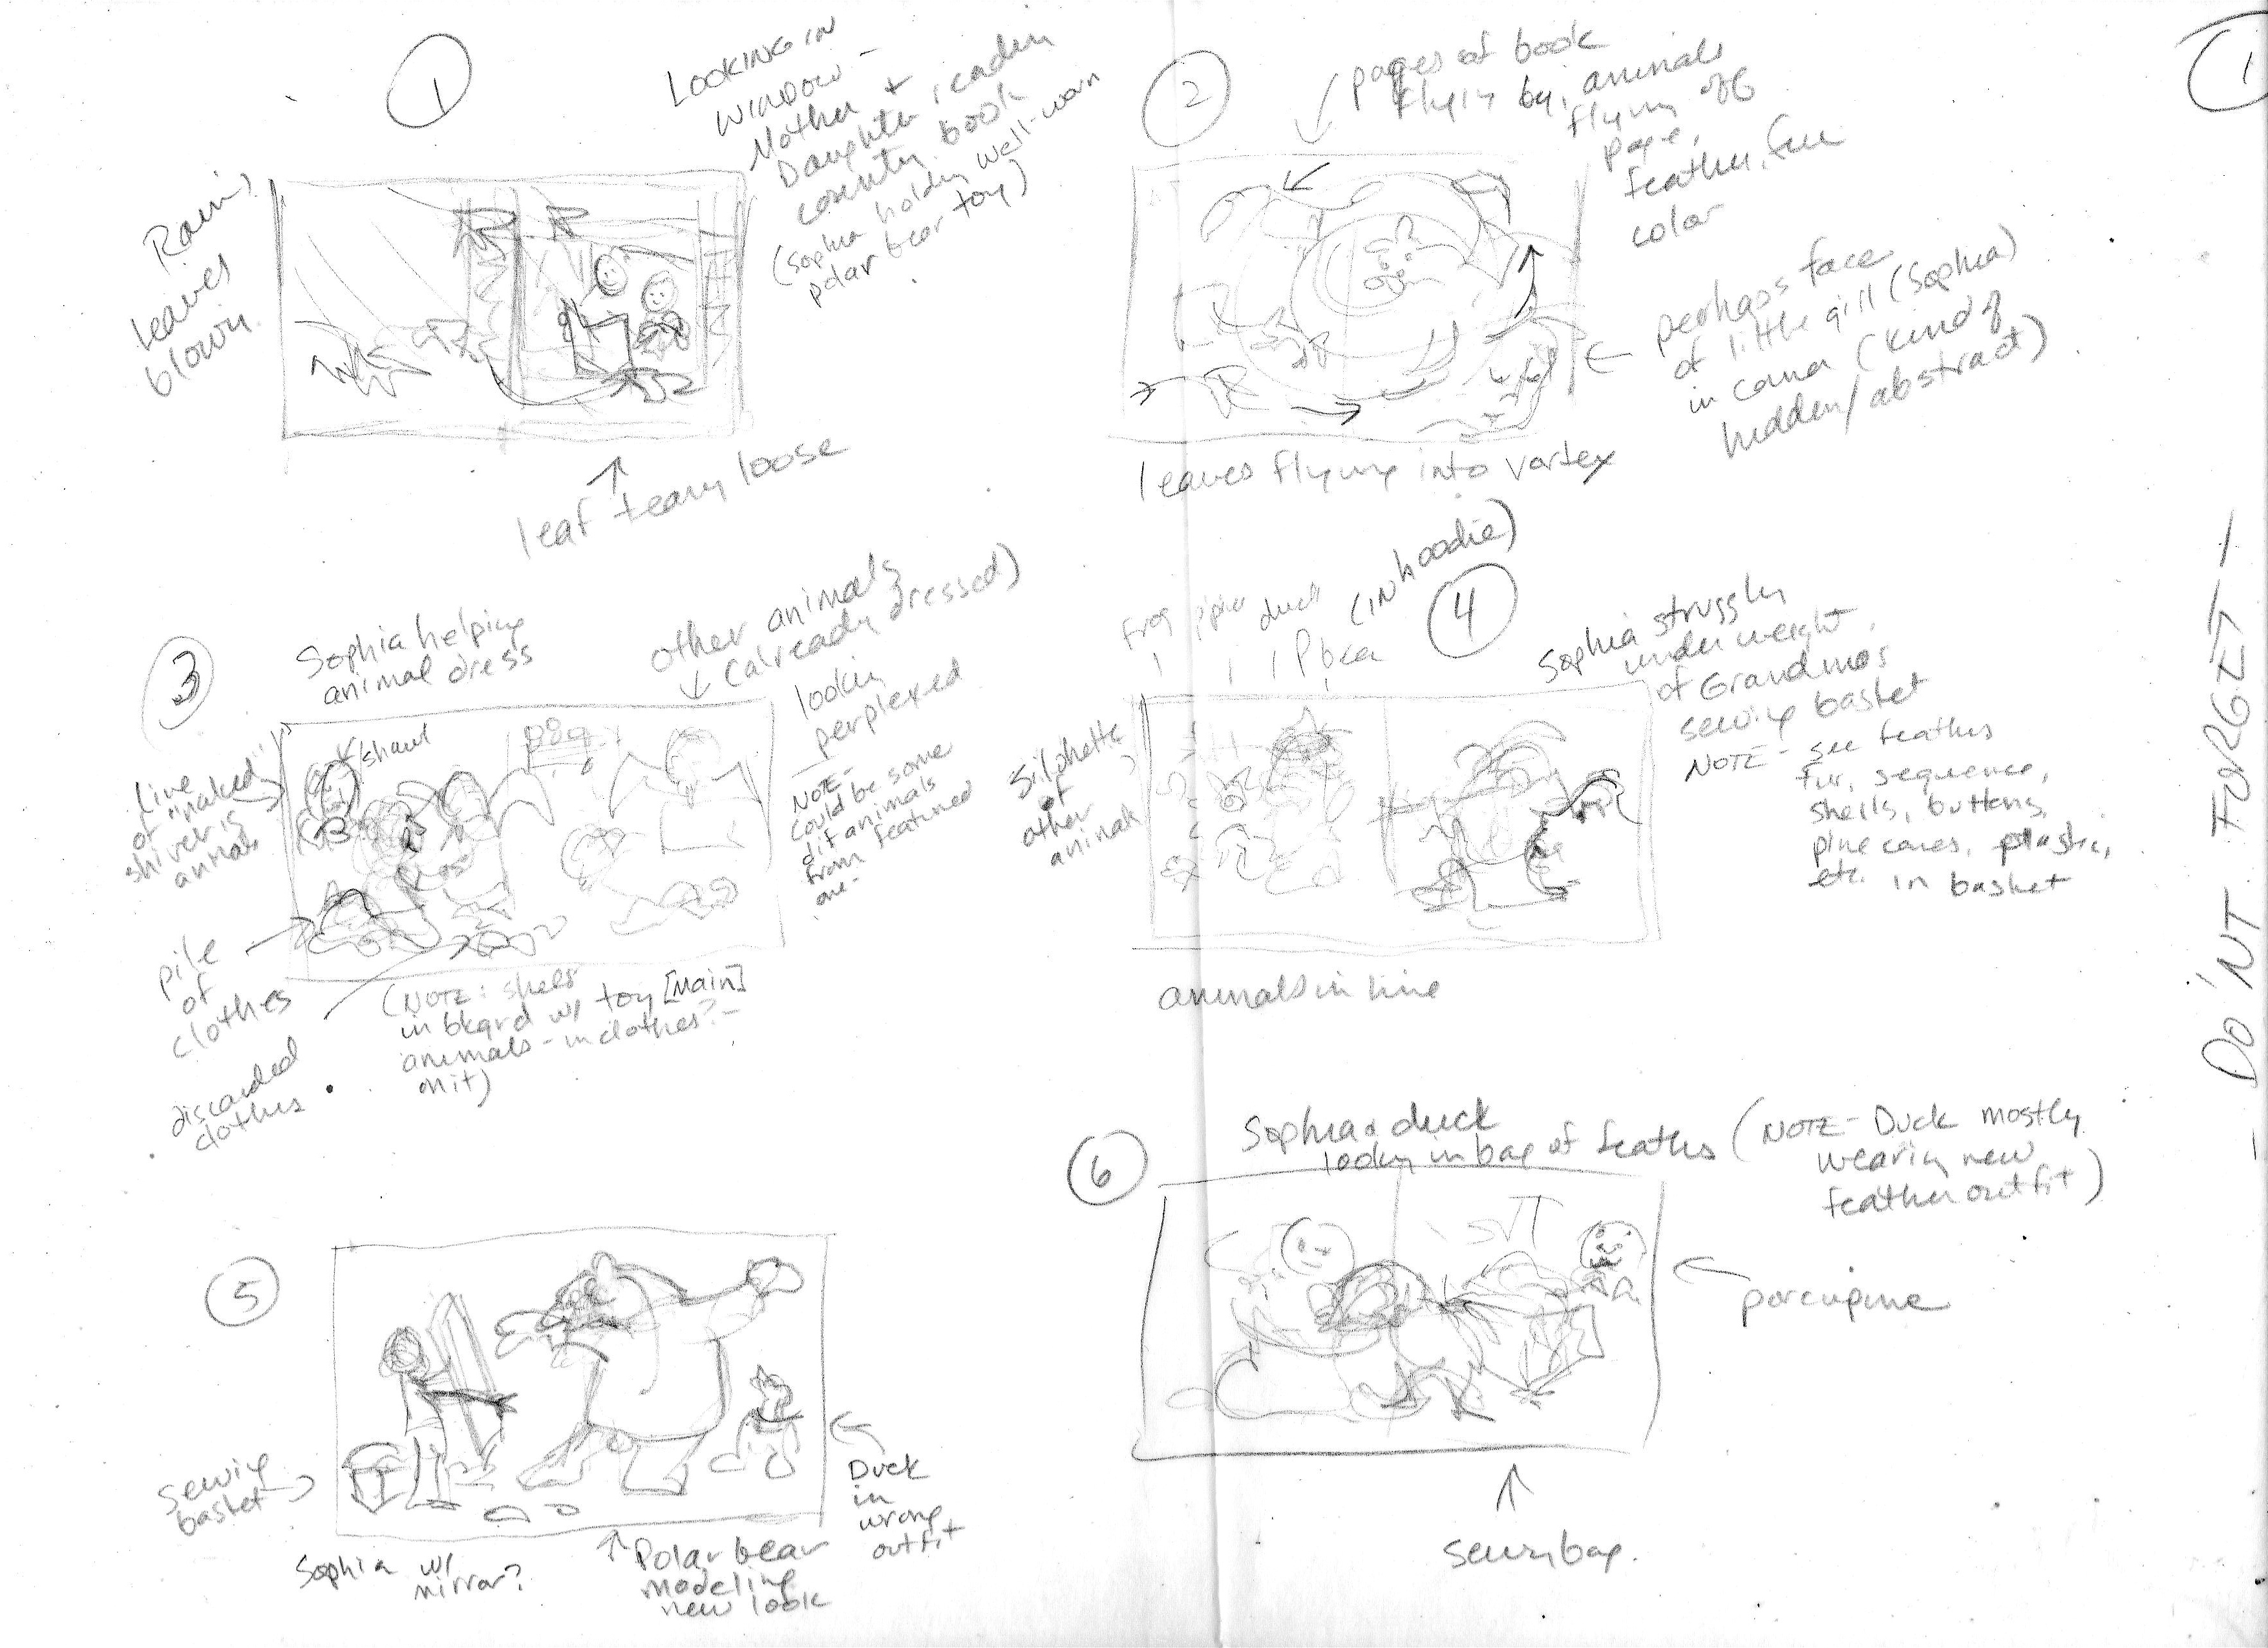 1
LOOKING IN
WINDOW -
Mother +
Daughter, reading
country book
(Sophia holding well-worn
polar bear toy)
Rain,
leaves
blown
leaf tearing loose
2
pages of book
flying by, animals
flying off
page,
feather, fur
color
perhaps face
of little girl (Sophia)
in corner (kind of
hidden/abstract)
leaves flying into vortex
1
3
Sophia helping
animal dress
other animals
(already dressed)
looking
perplexed
NOTE-
could be some
dif animals
from featured
one-
shawl
Line
of "naked"
shivering
animals
pile
of
clothes
discarded
clothes
(NOTE: shelf
in bkgrd w/ toy [Main]
animals - in clothes? -
omit)
4
frog
duck
(IN hoodie)
Pbear
Silohette
of
other
animals
Sophia struggling
under weight
of Grandmas
sewing basket
NOTE- see feathers
fur, sequence,
shells, buttons,
pine cones, plastic,
etc. in basket
animals in line
- DO'NT FORGET -
5
sewing
basket
Sophia w/
mirror?
Polar bear
modeling
new look
Duck
in
wrong
outfit
6
Sophia & duck
looking in bag of feathers
(NOTE- Duck mostly
wearing new
feather outfit)
porcupine
sewing bag.